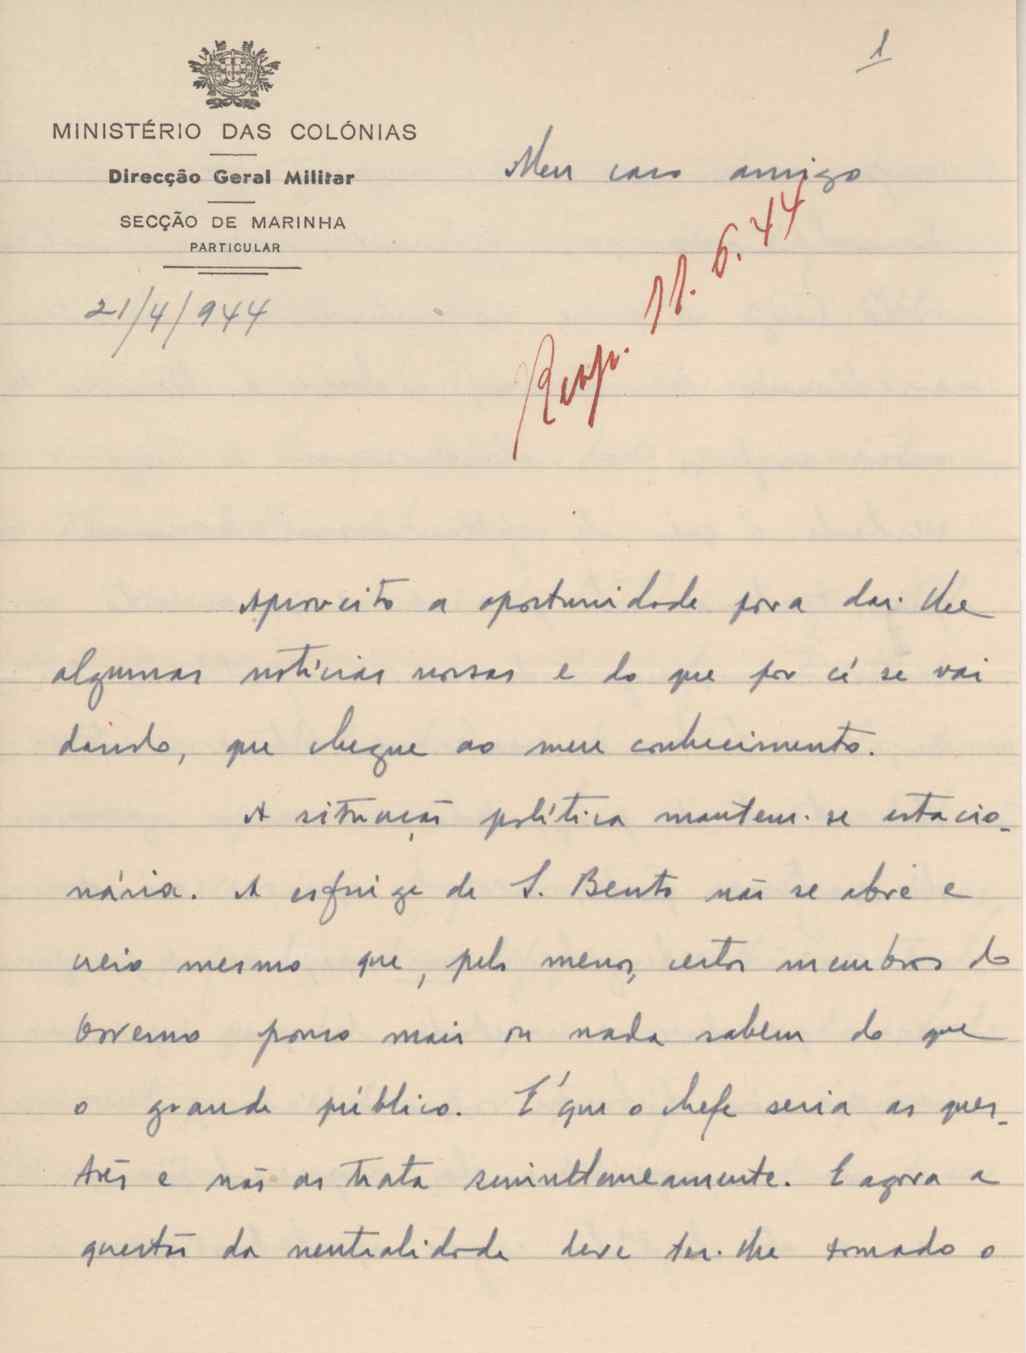 1
MINISTÉRIO DAS COLÓNIAS
Direcção Geral Militar
SECÇÃO DE MARINHA
PARTICULAR
21/4/944
Meu caro amigo
Resp. 11.6.44
Aproveito a oportunidade para dar-lhe
algumas notícias nossas e do que por cá se vai
dando, que chegue ao meu conhecimento.
A situação política mantem-se estacio-
nária. A esfinge de S. Bento não se abre e
creio mesmo que, pelo menos, certos membros do
Governo pouco mais ou nada sabem do que
o grande público. É que o chefe seria as ques-
tões e não as trata simultaneamente. E agora a
questão da neutralidade deve ter-lhe tomado o